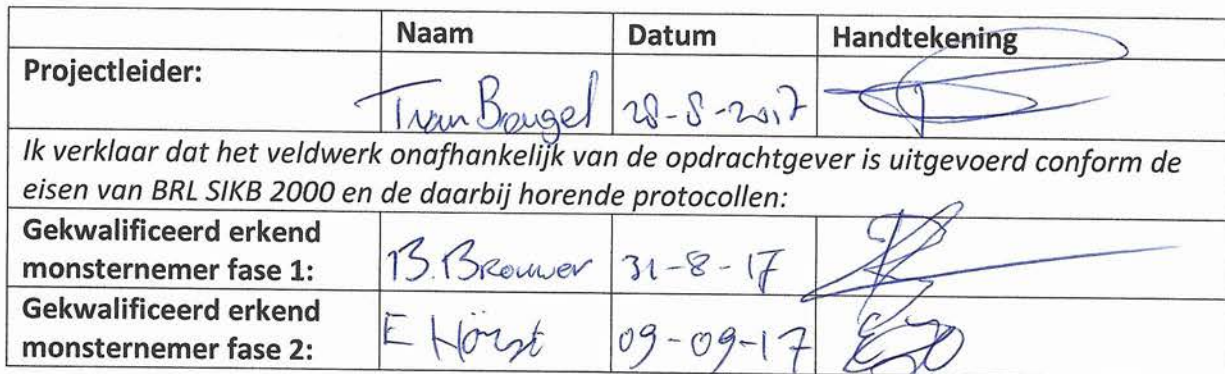 Naam Datum Handtekening
Projectleider:
T van Beugel 28-8-2017
Ik verklaar dat het veldwerk onafhankelijk van de opdrachtgever is uitgevoerd conform de
eisen van BRL SIKB 2000 en de daarbij horende protocollen:
Gekwalificeerd erkend
monsternemer fase 1: B. Brouwer 31-8-17
Gekwalificeerd erkend
monsternemer fase 2: E Hörst 09-09-17